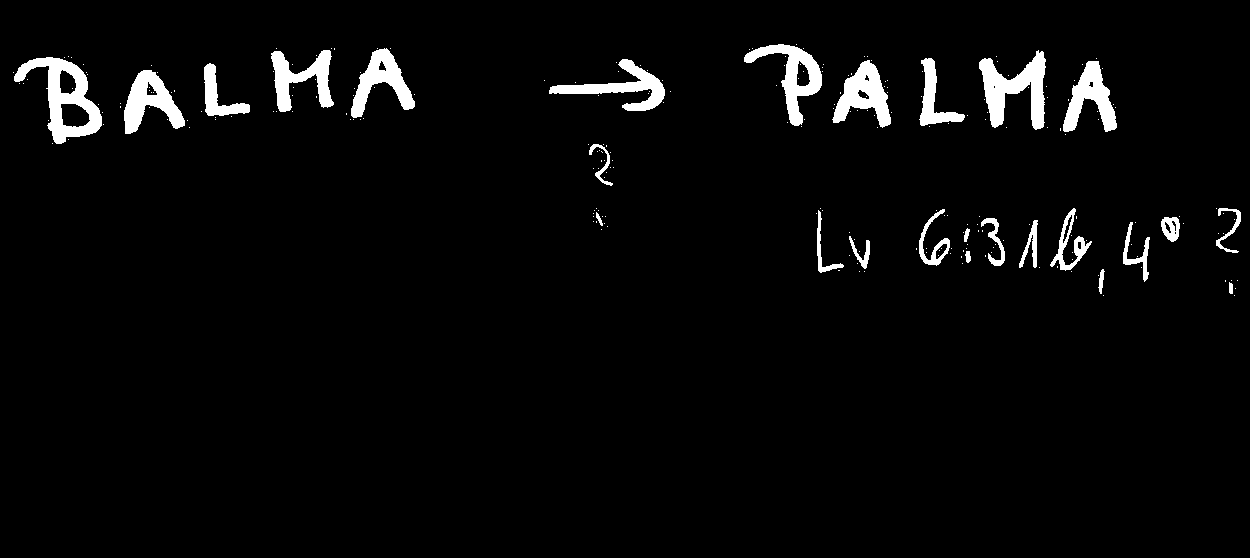 BALMA → PALMA
?
Lv 6:31b, 4° ?